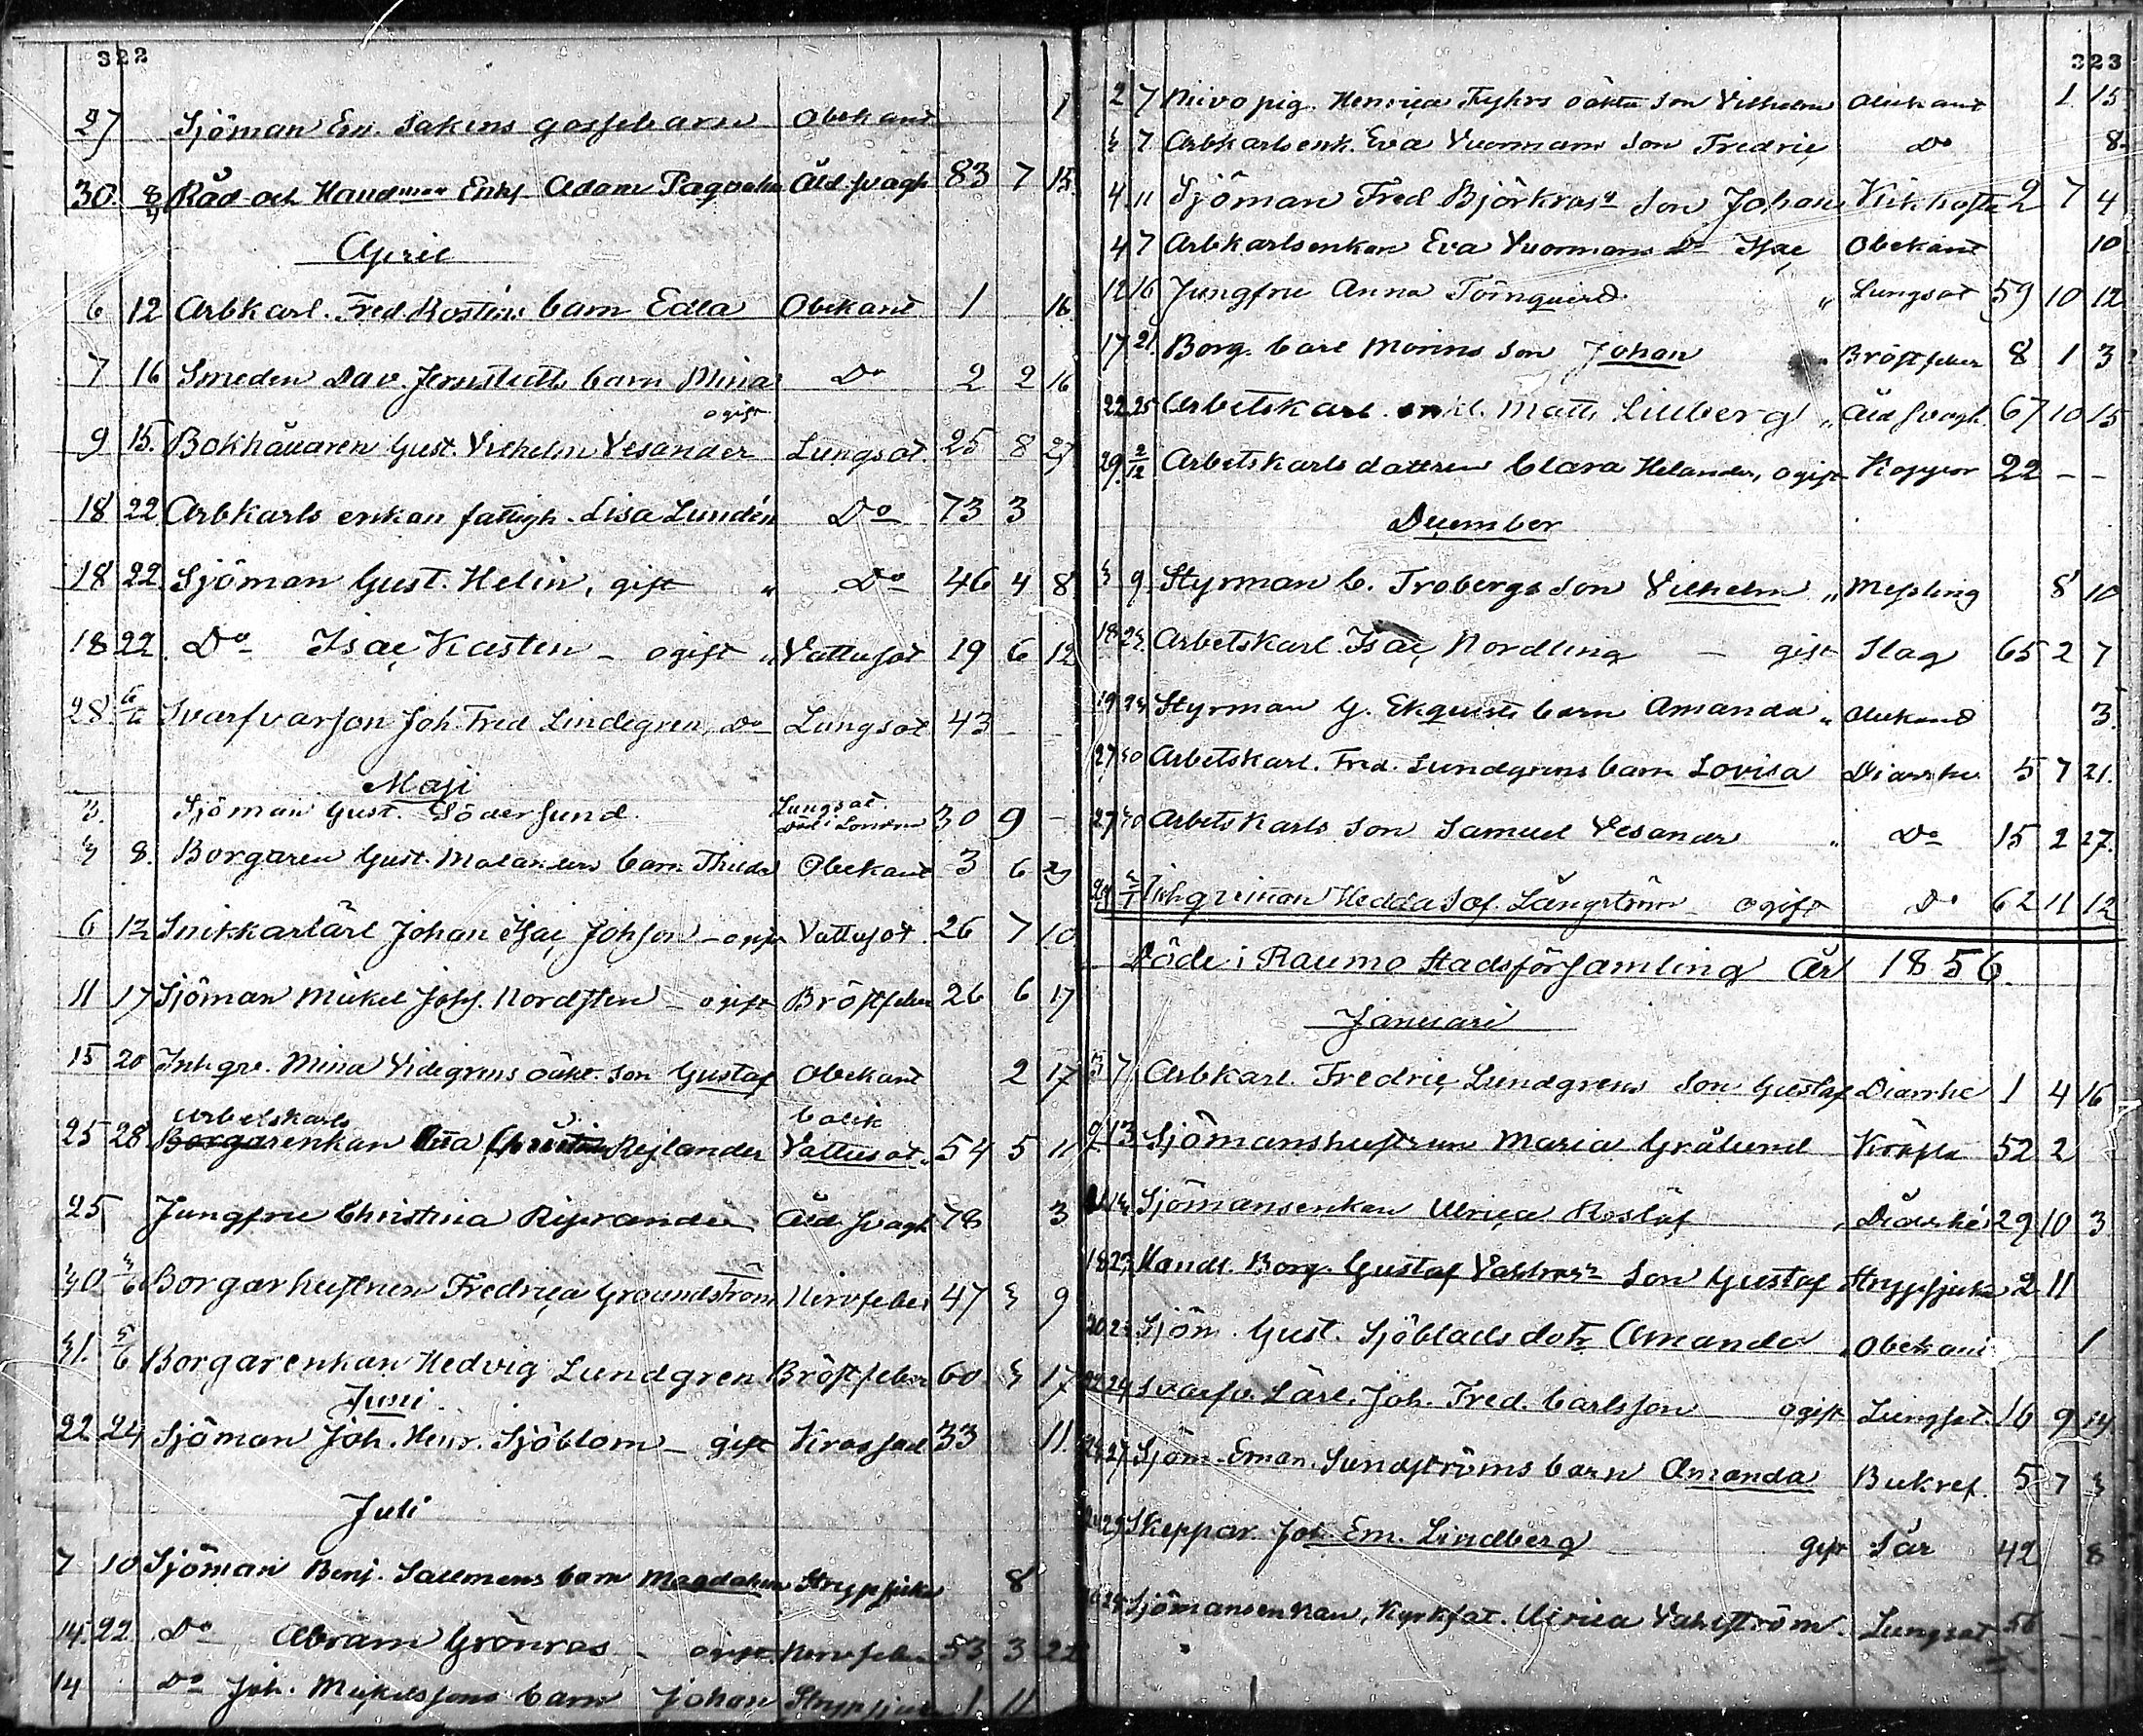 322
27 Sjöman Em. Sakens gossebarn Obekant 1
30. Råd och Handman Enkl Adam Åld. svagh 83 7 15
April
6 12 Arbkarl. Fred. Rosténs barn Edla Obekant 1 16
7 16 Smeden Dav. Jernstedts barn Mina Do 2 2 16
ogift
9 15. Bokhållaren Gust. Vilhelm Vesander Lungsot. 25 8 29
18 22 Arbkarls enkan fattigh. Lisa Lundén Do 73 3
18 22 Sjöman Gust. Helin, gift " Do 46 4 8
18 22 Do Isac Kasten - ogift " Vattusot 19 6 12
28. 6/6 Svarfvarson Joh. Fred Lindegren, Do Lungsot 43 - -
Maji
3. Sjöman Gust. Söderlund. Lungsot. Död i London 30 9 -
3 8. Borgaren Gust. Malanders barn Thilda Obekant 3 6 29
6 12 Snikkarlärl Johan Isac Johsson - ogift Vattusot. 26 7 10
11 17 Sjöman Mickel Jos. Nordsten - ogift Bröstfeber 26 6 17
15 20 Inhgre. Mina Videgrens oäkt. son Gustaf Obekant 2 17
Arbetskarls Colik
25 28 Borgarenkan Rejlander Vattusot " 54 5 11
25 Jungfru Christina Åld. svagh 78 3
30 3/6 Borgarhustrun Fredrica Graundström Nervfeber 47 3 9
31. 5/6 Borgarenkan Hedvig Lundgren Bröstfeber 60 3 17
Juni
22 24 Sjöman Joh. Henr. Sjöblom - gift Krossad 33 11.
Juli
7 10 Sjöman Benj. Sallmens barn Magdalena Strypsjuka 8
14. 22 Do Abram Grönroos - Nervfeber 53 3 22
14 Do Joh. Mickelssons barn Johan Strypsjuk 1 11
323
2 7 pig. Henrica oäkta son Vilhelm Obekant 1 15
3 7 Arbkarlsenk. Eva Vuormans son Fredric Do 8.
4. 11 Sjöman Fred Björkroos son Johan Kikhosta 2 7 4
4 7 Arbkarlsenkan Eva Vuormans Do Isac Obekant 10
12 16 Jungfru Anna Törnquist " Lungsot 59 10 12
17 21. Borg. Carl Morins son Johan " Bröstfeber 8 1 3
22 25 Arbetskarl. enkl. Matts Lillberg " Åld svagh. 67 10 15
29. 2/12 Arbetskarls dottren Clara Helander, ogift Koppor 22 - -
December
3 9 Styrman C. Frobergs son Vilhelm " Messling 8 10
18 23 Arbetskarl. Isac Nordling - gift Slag 65 2 7
19 24 Styrman G. Ekquists barn Amanda " Obekand 3.
27 30 Arbetskarl. Fred. Lundgrens barn Lovisa Diarrhe 5 7 21.
27 30 Arbetskarls son Samuel Vesander " Do 15 2 27.
Inhgrinnan Hedda Sof. Långström - ogift Do 62 11 12
Döde i Raumo Stadsförsamling År 1856.
Januari
7 Arbkarl. Fredric Lundgrens son Gustaf Diarrhe 1 4 16
9 13 Sjömanshustrun Maria Grålund Kräfta 52 2
Sjömansenkan Ulrica Roslöf " Diarrhé 29 10 3
18 23 Handl. Borg. Gustaf son Gustaf Strypsjuka 2 11
20 23 Sjöm. Gust. Sjöblads dotr Amanda " Obekant 1
24 Svarfv. Lärl. Joh. Fred. Carlsson ogift Lungsot. 16 9 14
27 Sjöm. Eman. Sundströms barn Amanda Bukref. 5 7 3
29 Skeppar. Joh. Em. Lindberg gift Sår 42 8
Sjömansenkan, Kyrkfat. Ulrica Vahlström. Lungsot 56 - -